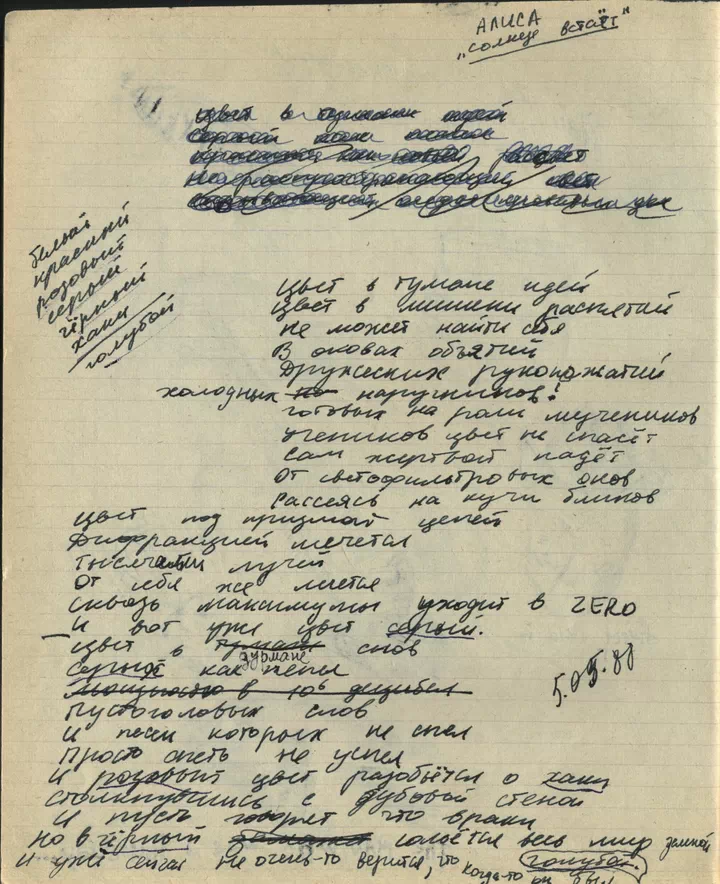 АЛИСА
"солнце встаёт"
цвет в тумане идей
белый
красный
розовый
серый
чёрный
хаки
голубой
цвет в тумане идей
цвет в мишени распятий
не может найти себя
В оковах объятий
Дружеских рукопожатий
холодных наручников!
готовых на роли мучеников
учеников цвет не спасёт
Сам жертвой падёт
От светофильтровых оков
Рассеясь на кучи бликов
Цвет под призмой цепей
Дифракцией мечется
Тысячами лучей
От себя же лечится
Сквозь максимумы уходит в ZERO
И вот уже цвет серый.
цвет в тумане дурмане снов
Серый как пепел
Мощностью в 10⁶ децибел
Пустоголовых слов
И песни которых не спел
Просто спеть не успел
И розовый цвет разобьётся о хаки
столкнувшись с дубовой стеной
И пусть говорят что враки
Но в чёрный сольётся весь мир земной
И уже сейчас не очень-то верится, что когда-то он был голубой.
5.05.88